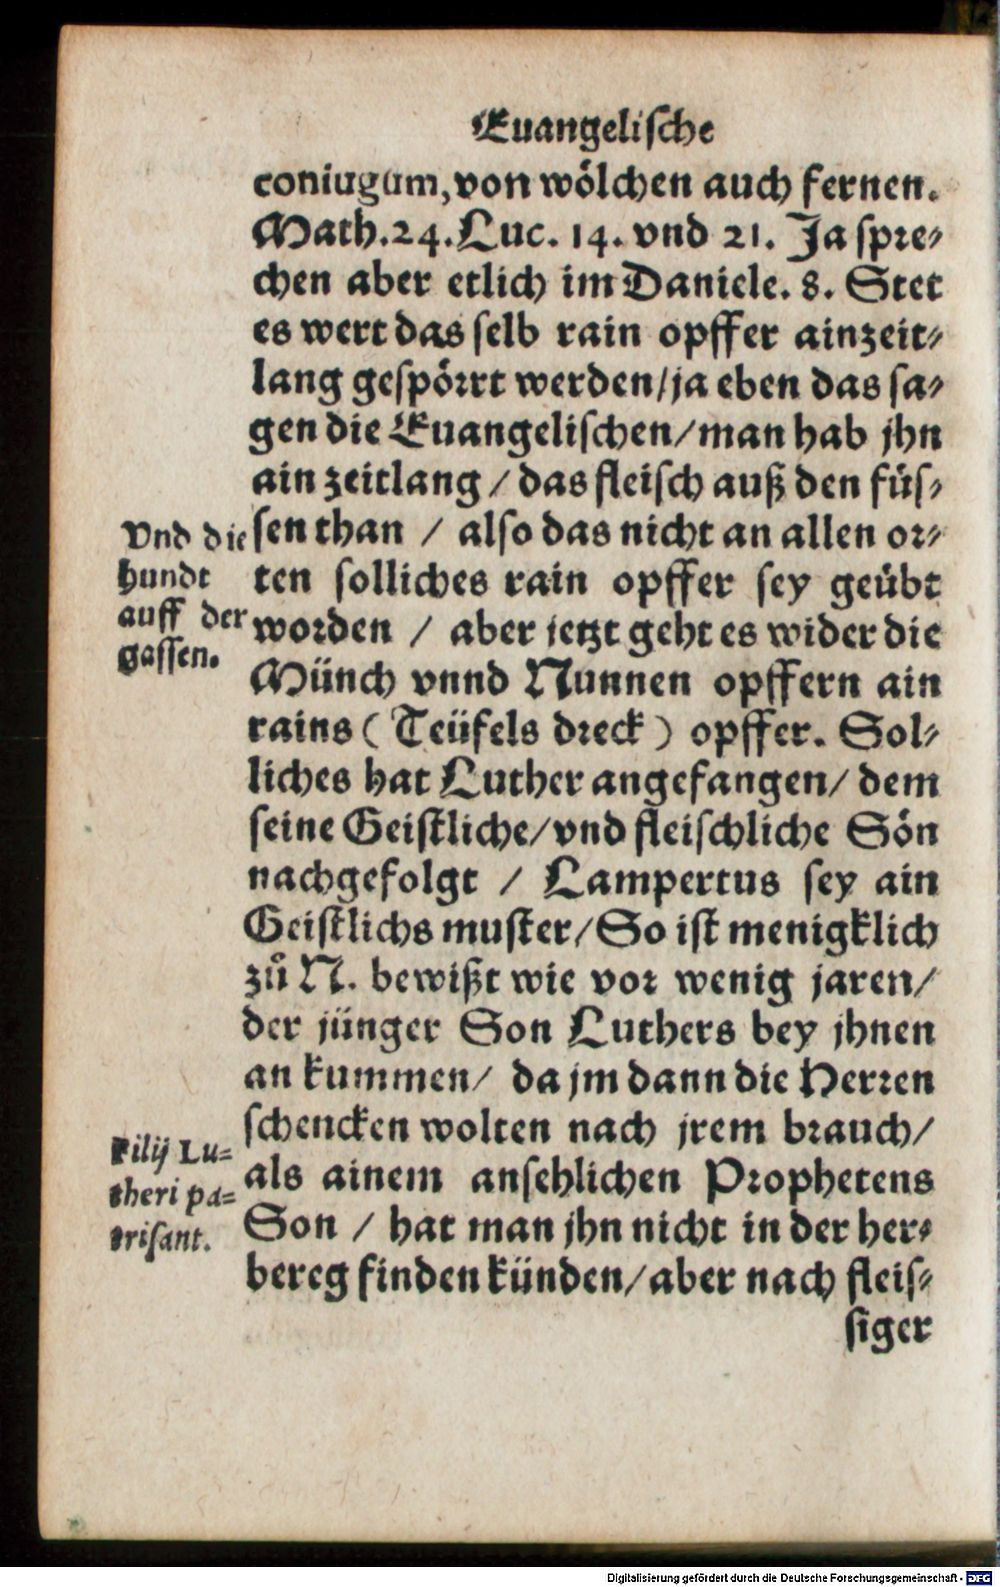 Euangelische
coniugum, von wölchen auch fernen.
Math. 24. Luc. 14. vnd 21. Ja spre⸗
chen aber etlich im Daniele. 8. Stet
es wert das selb rain opffer ainzeit⸗
lang gespörrt werden/ ja eben das sa⸗
gen die Euangelischen/ man hab jhn
ain zeitlang / das fleisch auß den füs⸗
sen than / also das nicht an allen or⸗
ten solliches rain opffer sey geübt
worden / aber jetzt geht es wider die
Münch vnnd Nunnen opffern ain
rains ( Teüfels dreck ) opffer. Sol⸗
liches hat Luther angefangen/ dem
seine Geistliche/ vnd fleischliche Sön
nachgefolgt / Lampertus sey ain
Geistlichs muster/ So ist menigklich
zuͦ N. bewißt wie vor wenig jaren/
der jünger Son Luthers bey jhnen
an kummen/ da jm dann die Herren
schencken wolten nach jrem brauch/
als ainem ansehlichen Prophetens
Son / hat man jhn nicht in der her⸗
bereg finden künden/ aber nach fleis⸗
siger
Vnd die
hundt
auff der
gassen.
Filij Lu=
theri pa=
trisant.
Digitalisierung gefördert durch die Deutsche Forschungsgemeinschaft - DFG